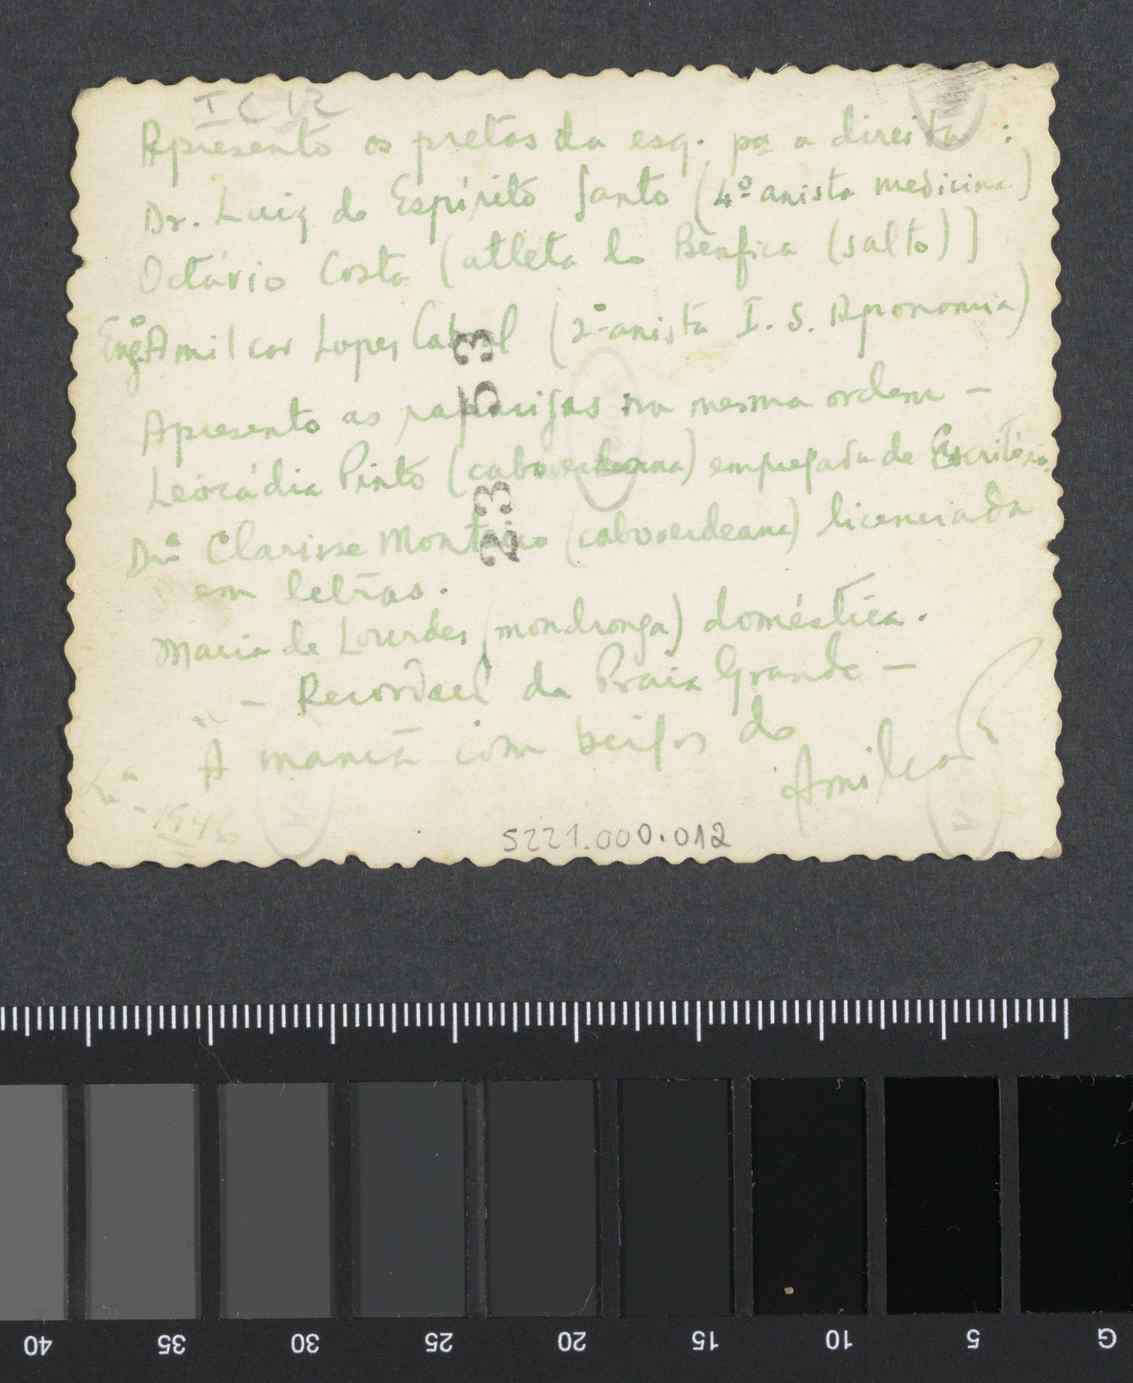 I C 12
Apresento os pretos da esq. pa a direita :
Dr. Luiz do Espírito Santo (4º anista medicina)
Octávio Costa (atleta do Benfica (salto))
Engº Amilcar Lopes Cabral (2º anista I. S. Agronomia)
Apresento as raparigas na mesma ordem -
Leocádia Pinto (caboverdeana) empregada de Escritório
Drª Clarisse Monteiro (caboverdeana) licenciada
em letras.
Maria de Lourdes (mondronga) doméstica.
- Recordael da Praia Grande -
À mamã com beijos do
Amilcar
Lxª - 1946
S221.000.012
2.3 5 3
40 35 30 25 20 15 10 5 G